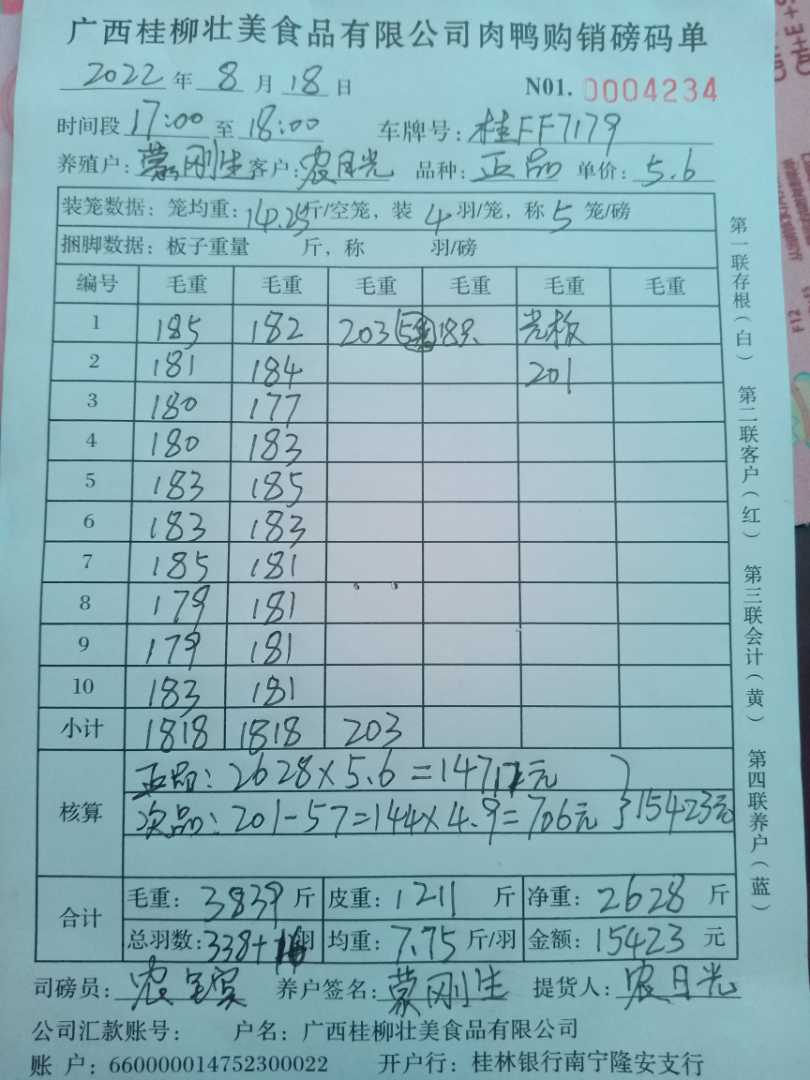 广西桂柳壮美食品有限公司肉鸭购销磅码单
2022 年 8 月 18 日 N01. 0004234
时间段 17:00 至 18:00 车牌号: 桂FF7179
养殖户: 蒙刚生 客户: 农月光 品种: 正品 单价: 5.6
装笼数据: 笼均重: 14.25 斤/空笼, 装 4 羽/笼, 称 5 笼/磅
捆脚数据: 板子重量 斤, 称 羽/磅
编号 毛重 毛重 毛重 毛重 毛重 毛重
1 185 182 203 光板
2 181 184 201
3 180 177
4 180 183
5 183 185
6 183 183
7 185 181
8 179 181
9 179 181
10 183 181
小计 1818 1818 203
核算
正品: 2628×5.6=14717元
次品: 201-57=144×4.9=706元 }15423元
合计
毛重: 3839 斤 皮重: 1211 斤 净重: 2628 斤
总羽数: 338+16羽 均重: 7.75 斤/羽 金额: 15423 元
司磅员: 农 宾 养户签名: 蒙刚生 提货人: 农月光
公司汇款账号: 户名: 广西桂柳壮美食品有限公司
账 户: 660000014752300022 开户行: 桂林银行南宁隆安支行
第一联存根(白) 第二联客户(红) 第三联会计(黄) 第四联养户(蓝)